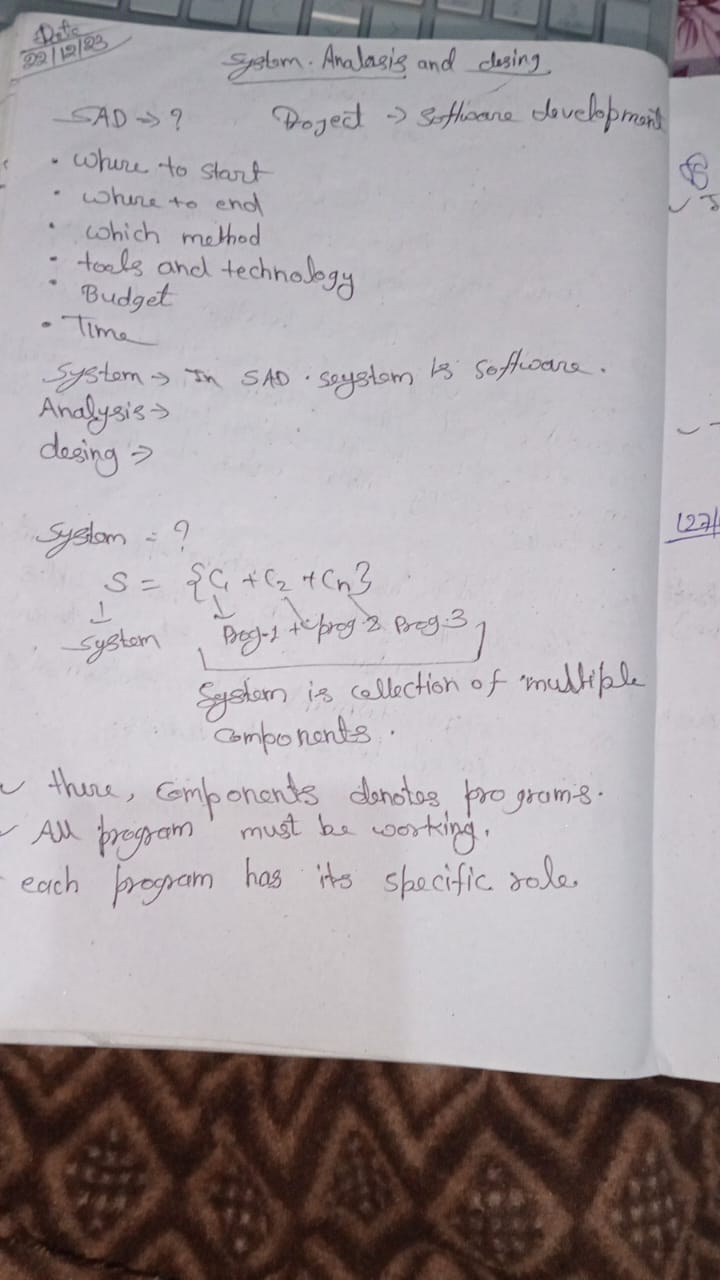 Date
22/12/23
System. Analasis and desing
SAD → ? Project → Software development
• Where to start
• Where to end
• Which method
• tools and technology
• Budget
• Time
System → In SAD . seystem is software.
Analysis →
desing →
System = ?
S = {C1 + C2 + Cn}
↓ ↓
System Prog-1 + prog 2 Prog.3
System is collection of multiple
Components.
there, Components denotes programs.
All program must be working.
each program has its specific role.
127/